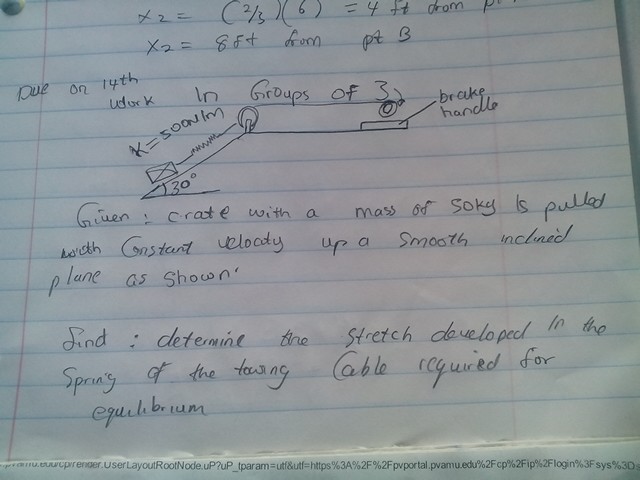 x2 = (2/3)(6) = 4 ft from pt
x2 = 8ft from pt B
Due on 14th
Work In Groups of 3
brake
handle
K=500N/m
30°
Given : crate with a mass of 50kg is pulled
with Constant velocity up a smooth inclined
plane as shown.
find : determine the stretch developed in the
Spring of the towing Cable required for
equilibrium
pvamu.edu/cp/render.UserLayoutRootNode.uP?uP_tparam=utf&utf=https%3A%2F%2Fpvportal.pvamu.edu%2Fcp%2Fip%2Flogin%3Fsys%3D